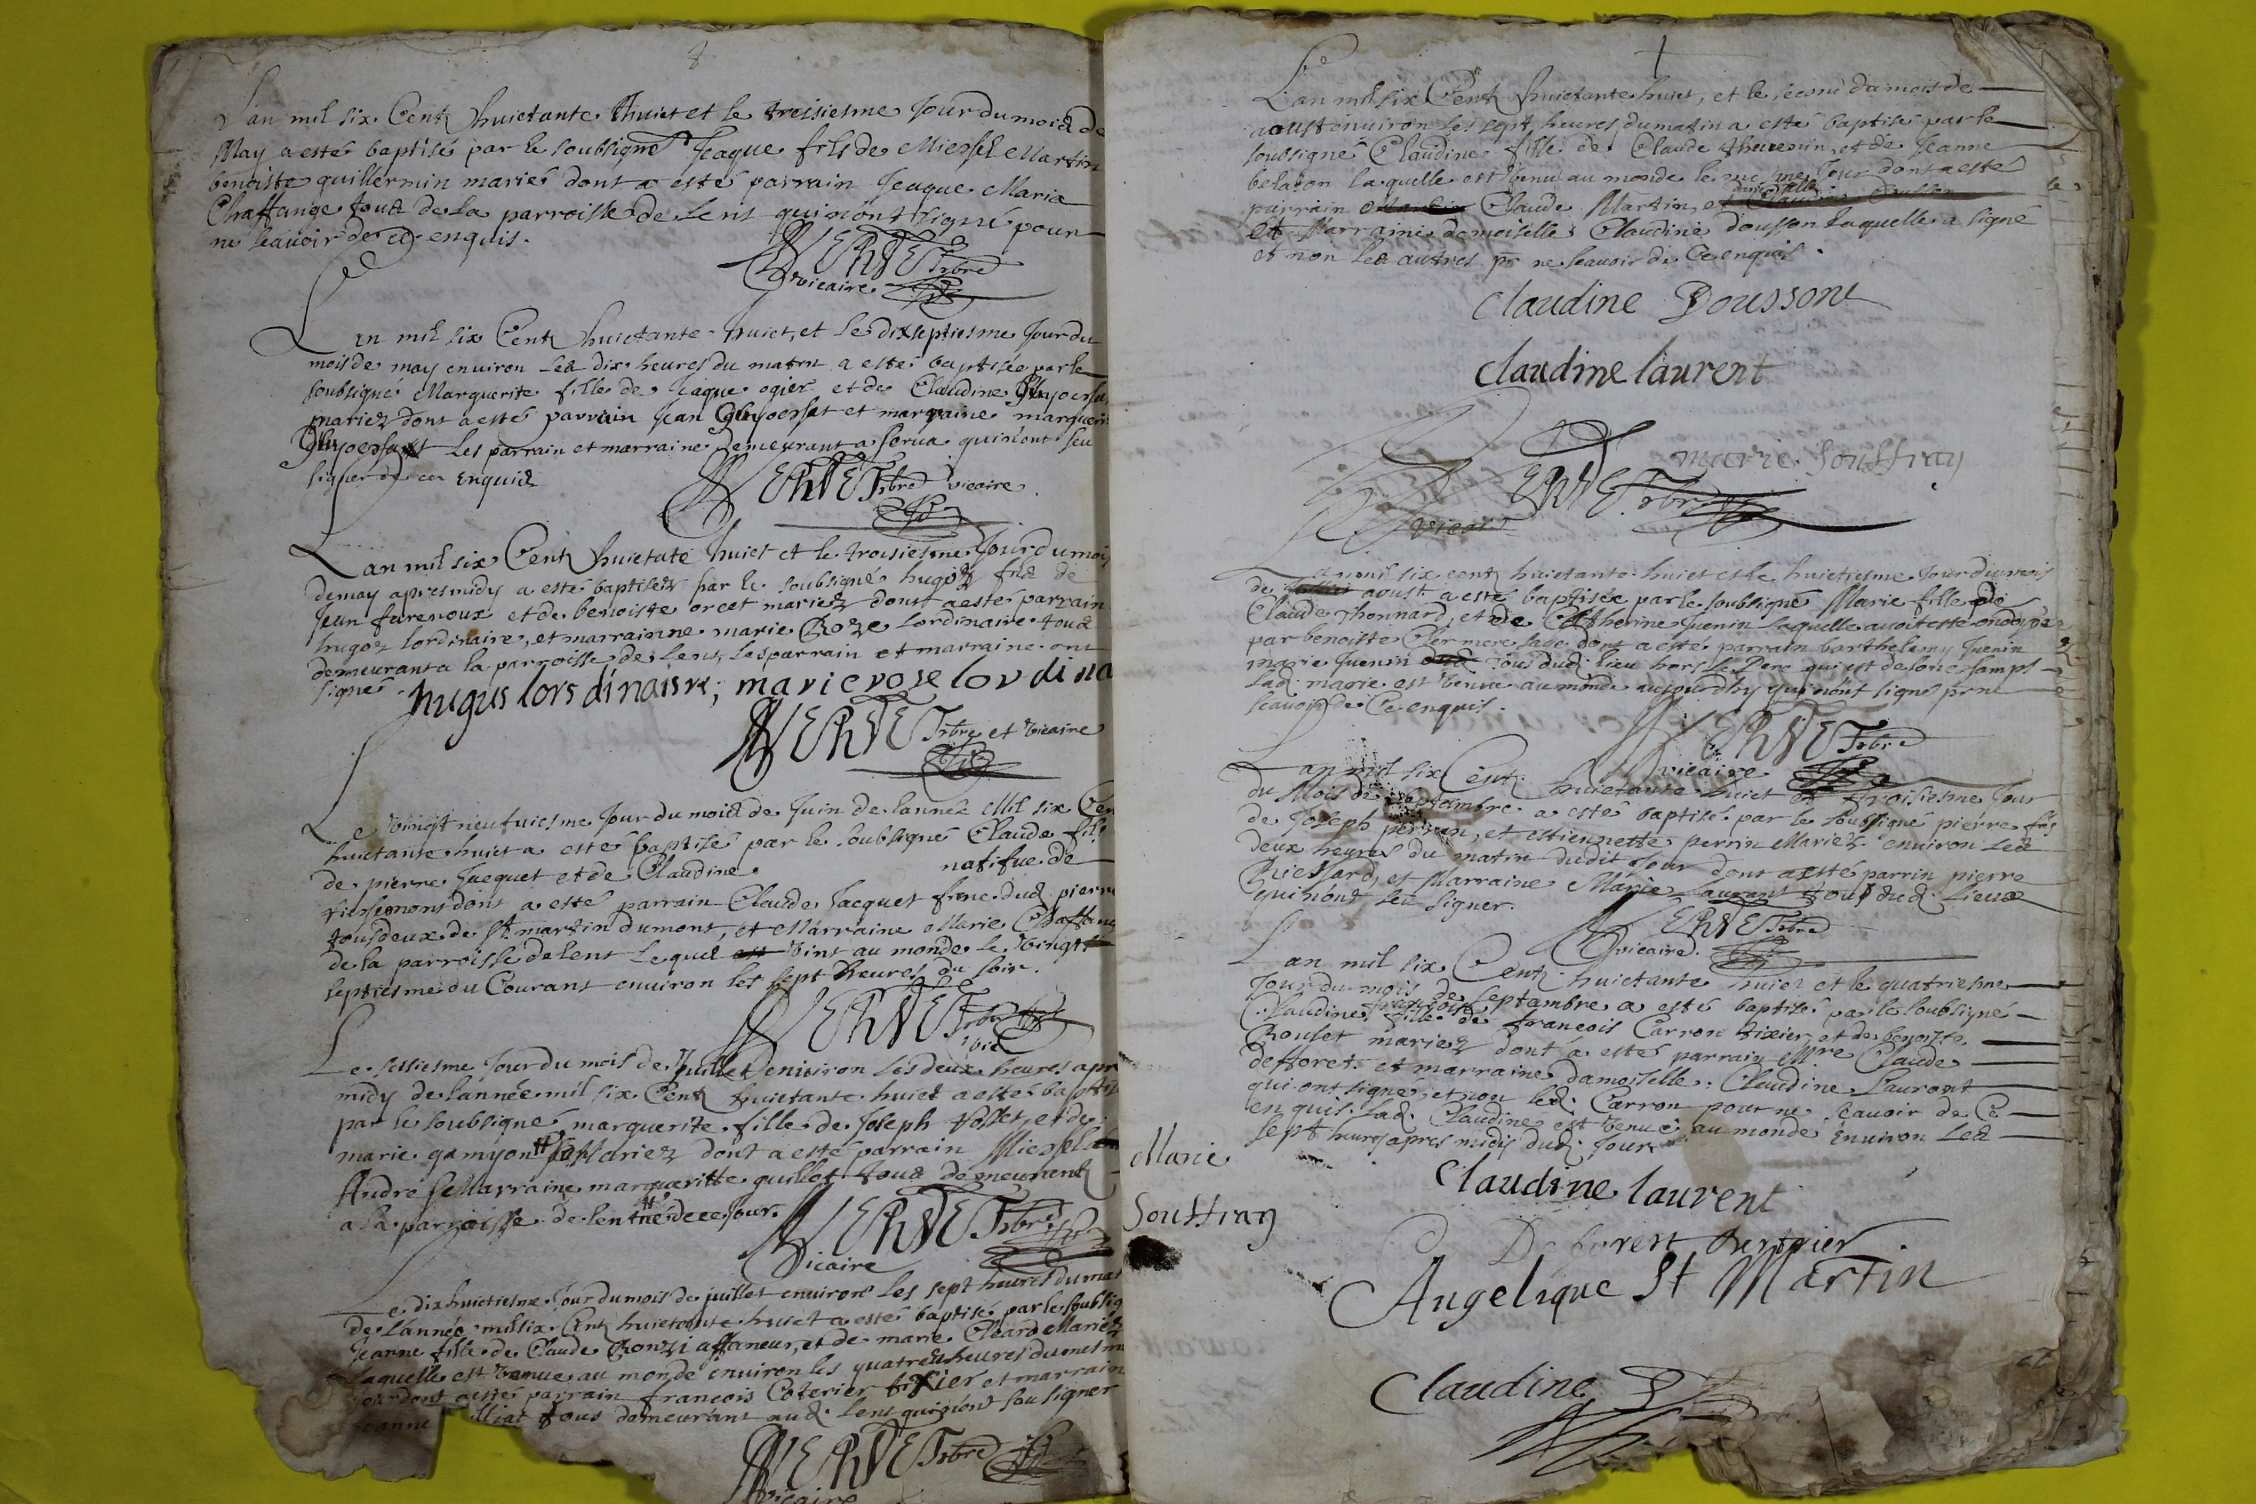 Lan mil six Cent huictante huict et le troisiesme Jour du mois de
May a esté baptisé par le soubsigné Jeaque fils de Michel Martin
benoiste guillermin mariés dont a esté parrain Jeaque Maria
Chaffange tous de la parroisse de Lent qui nont signé pour
ne scavoir de ce enquis.
vicaire
Lan mil six Cent huictante huict, et le dixseptiesme Jour du
mois de may environ les dix heures du matin a esté baptisée par le
soubsigné Marguerite fille de Jaque ogier et de Claudine
mariez dont a esté parrain Jean et marraine marguerit
les parrain et marraine demeurant a qui nont sceu
signer de ce Enquis
vicaire
Lan mil six Cent huictāte huict et le troisiesme Jour du moi
de may apres midy a esté baptisez par le soubsigné hugoz filz de
Jean furenoux et de benoiste orcet mariez dont a esté parrain
hugoz lordinaire, et marrainne marie Roze Lordinaire tous
demeurant a la parroisse de Lent, les parrain et marraine ont
signés.
hugus lors dinaisre; marie rose lordina
et vicaire
Le vingt neufviesme Jour du mois de Juin de lannée Mil six Cen
huictante huict a esté baptisé par le soubsigné Claude fils
de pierre Jacquet et de Claudine natifve de
dont a esté parrain Claude Jacquet dud. pierre
tous deux de St martin du mont, et Marraine Marie Chaffang
de la parroisse de Lent Lequel est vint au monde le vingt
septiesme du Courant environ les sept heures du soir.
Le sesiesme Jour du mois de Juillet environ les deux heures apr
midy de lannée mil six Cent huictante huict a esté baptis
par le soubsigné marguerite fille de Joseph et de
marie gamyon Mariez dont a esté parrain Michel
André et Marraine margueritte guillot tous demeurent
a la parroisse de lent née de ce Jour.
vicaire
Le dixhuictiesme Jour du mois de juillet environ les sept heures du mat
de Lannée mil six Cent huictante huict a esté baptisé par le soubsig
Jeanne fille de Claude affaneur, et de marie Mariez
Laquelle est venue au monde environ les quatre heures du mesm
Jour dont a esté parrain francois tixier et marrain
Jeanne tous demeurant aud. Lent qui nont sceu signer
vicaire
Lan mil six Cent huictante huict, et le second du mois de
aoust environ les sept heures du matin a esté baptisé par le
soubsigné Claudine fille de Claude thevenin et de Jeanne
belaton laquelle est venu au monde le mesme Jour dont a esté
parrain Claude Martin, et
et Marraine damoiselle Claudine dousson laquelle a signé
et non les autres pr ne scavoir de Ce enquis.
Claudine Doussont
Claudine laurent
marie souffray
Lan mil six cent huictante huict et le huictiesme Jour du mois
de aoust a esté baptisée par le soubsigné Marie fille de
Claude Thonnard, et de Catherine Juenin laquelle avoit esté ondoyée
par benoiste sage dont a esté parrain barthelemy Juenin
marie Juenin tous dud. lieu hors le Pere qui est de
Lad. marie est venue au monde aujourdhy qui nont signé pr ne
scavoir de Ce enquis.
vicaire
Lan mil six Cent huictante huict et troisiesme Jour
du Mois de septambre a esté baptisé par le soubsigné pierre fils
de Joseph perrin, et estiennette perrin Mariez environ les
deux heures du matin dudit Jour dont a esté parrin pierre
Richard, et Marraine Marie Laurent tous dud. Lieux
qui nont sceu signer.
vicaire
Lan mil six Cent huictante huict et le quatriesme
Jour du mois de septambre a esté baptisé par le soubsigné
Claudine françoise fille de francois Carron tixier, et de benoiste
Roulet mariez dont a esté parrain Mre Claude
defforet et marraine damoiselle Claudine Laurent
qui ont signés, et non led. Carron pour ne scavoir de Ce
enquis. Lad. Claudine est venue au monde environ les
sept heures apres midis dud. Jour
Marie
Souffray
Claudine laurent
Angelique St Martin
Claudine